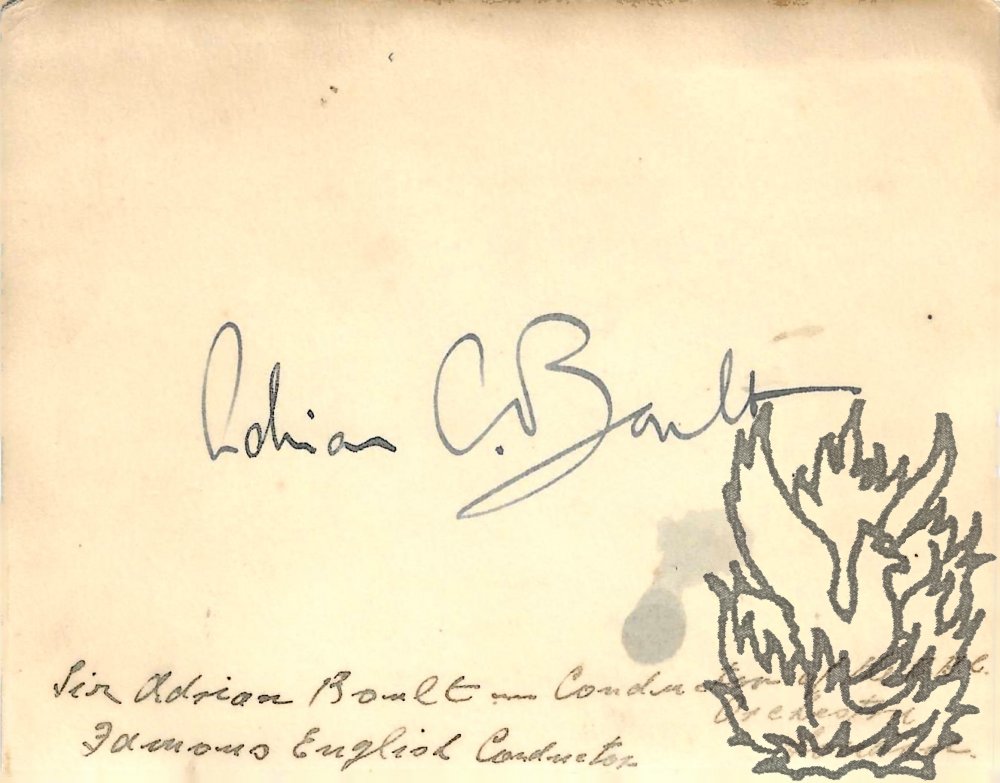 Adrian C. Boult
Sir Adrian Boult — Conductor
Orchestra
Famous English Conductor